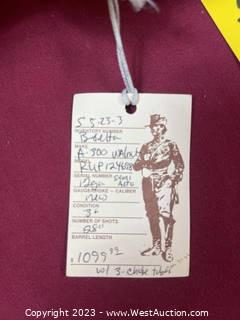 S 5.23-3
INVENTORY NUMBER
MAKE
A-300 walnut
SERIAL NUMBER
12ga Semi Auto
GAUGE/CHOKE – CALIBER
new
CONDITION
3+
NUMBER OF SHOTS
28"
BARREL LENGTH
$1099.95
w/ 3-choke tubes
Copyright 2023 - West Auction, Inc.